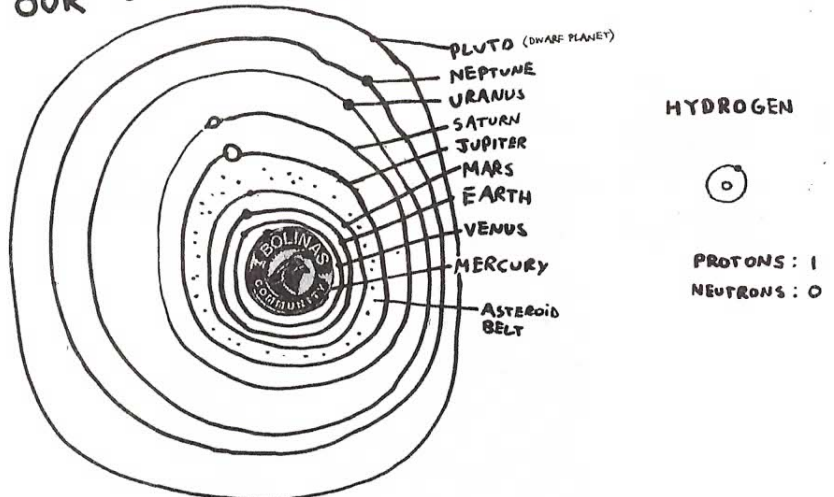 OUR
PLUTO (DWARF PLANET)
NEPTUNE
URANUS
SATURN
JUPITER
MARS
EARTH
VENUS
MERCURY
ASTEROID
BELT
BOLINAS
COMMUNITY
HYDROGEN
PROTONS: 1
NEUTRONS: 0